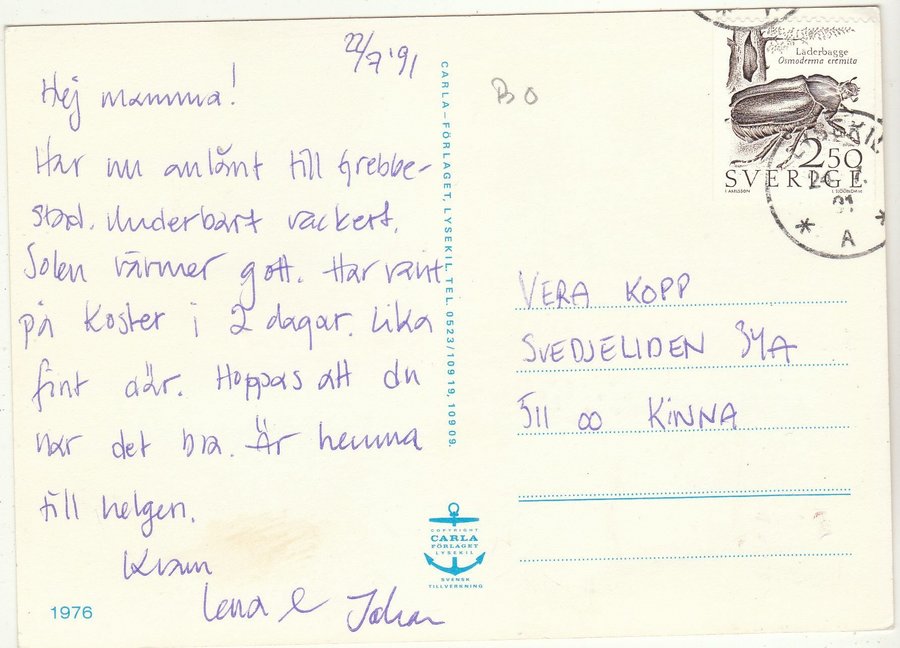 22/7 '91
Hej mamma!
Har nu anlänt till Grebbe-
stad. Underbart vackert.
Solen värmer gott. Har varit
på Koster i 2 dagar. Lika
fint där. Hoppas att du
har det bra. Är hemma
till helgen.
Kram
Lena & Johan
1976
CARLA-FÖRLAGET, LYSEKIL. TEL. 0523/109 19, 109 09.
COPYRIGHT
CARLA
FÖRLAGET
LYSEKIL
SVENSK
TILLVERKNING
BO
Läderbagge
Osmoderma eremita
2.50
SVERIGE
LYSEKIL
91
* A *
VERA KOPP
SVEDJELIDEN 34A
511 00 KINNA